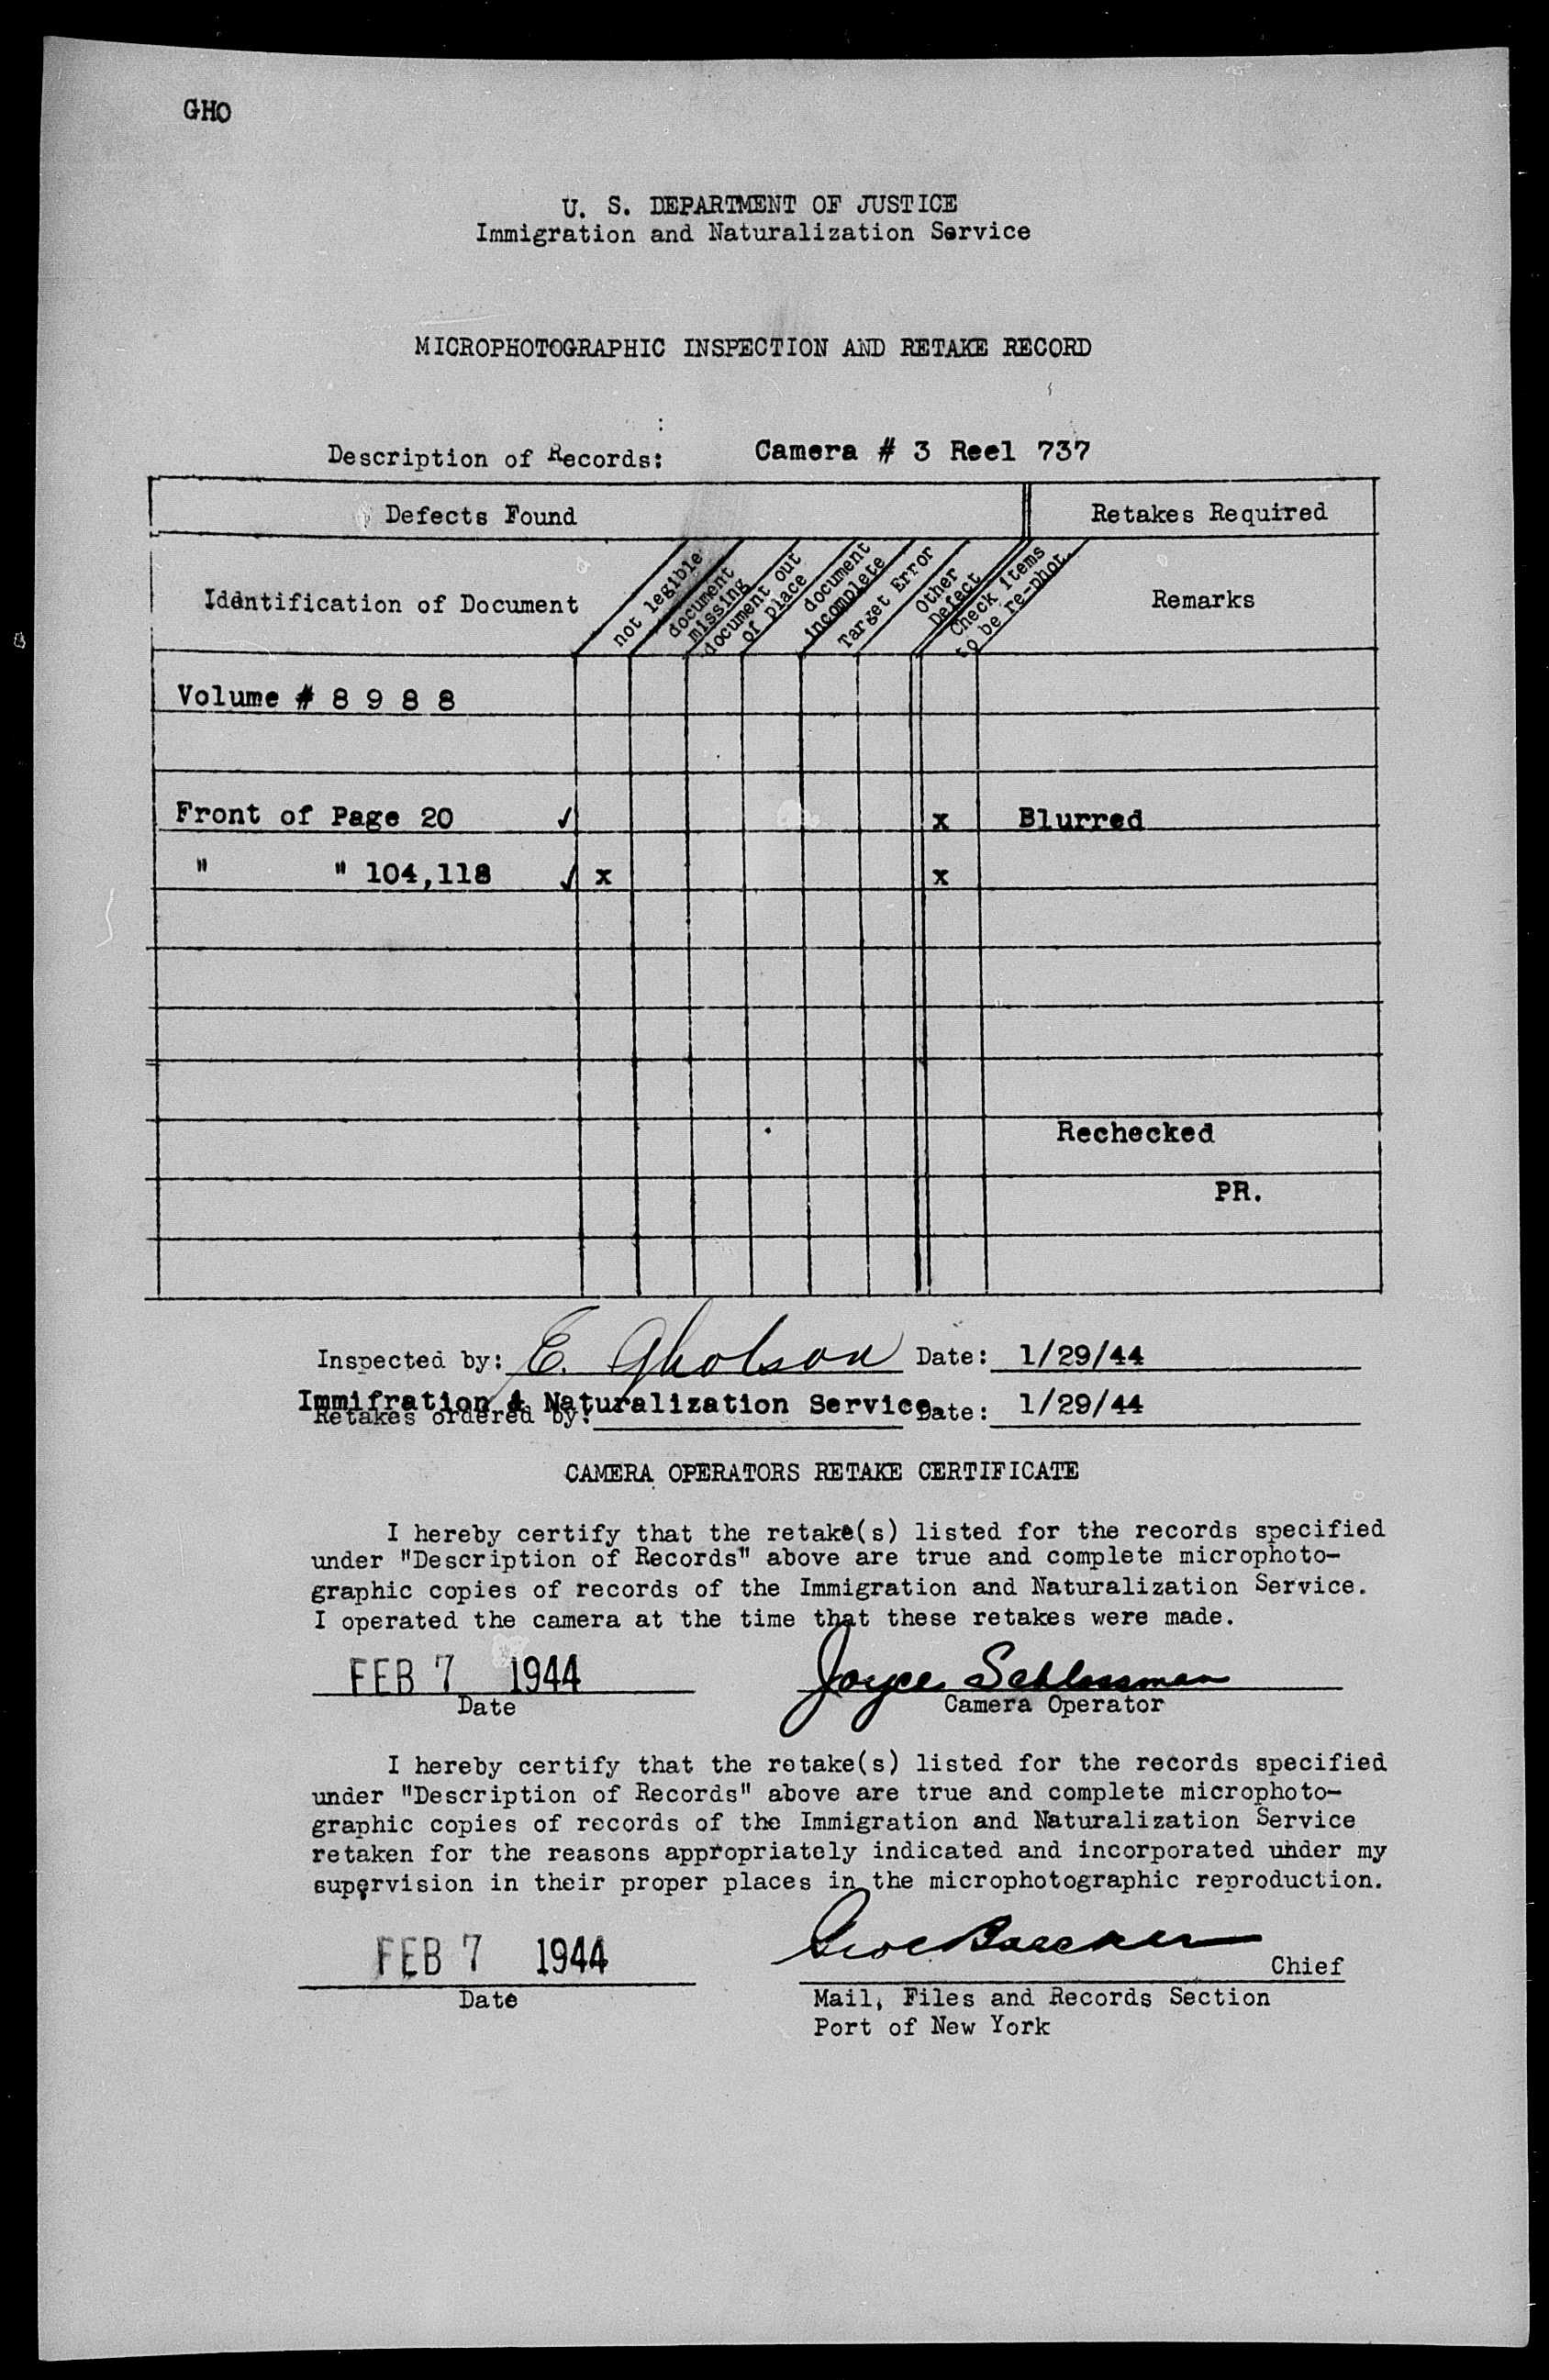 GHO
U. S. DEPARTMENT OF JUSTICE
Immigration and Naturalization Service
MICROPHOTOGRAPHIC INSPECTION AND RETAKE RECORD
Description of Records: Camera # 3 Reel 737
Defects Found Retakes Required
Identification of Document
not legible
document
missing
document out
of place
document
incomplete
Target Error
Other
Defect
Check items
to be re-phot.
Remarks
Volume # 8 9 8 8
Front of Page 20 ✓ x Blurred
" " 104,118 ✓ x x
Rechecked
PR.
Inspected by: E. Gholson Date: 1/29/44
Immifration & Naturalization Service
Retakes ordered by: Date: 1/29/44
CAMERA OPERATORS RETAKE CERTIFICATE
I hereby certify that the retake(s) listed for the records specified
under "Description of Records" above are true and complete microphoto-
graphic copies of records of the Immigration and Naturalization Service.
I operated the camera at the time that these retakes were made.
FEB 7 1944 Joyce Schlossman
Date Camera Operator
I hereby certify that the retake(s) listed for the records specified
under "Description of Records" above are true and complete microphoto-
graphic copies of records of the Immigration and Naturalization Service
retaken for the reasons appropriately indicated and incorporated under my
supervision in their proper places in the microphotographic reproduction.
FEB 7 1944 Chief
Date Mail, Files and Records Section
Port of New York